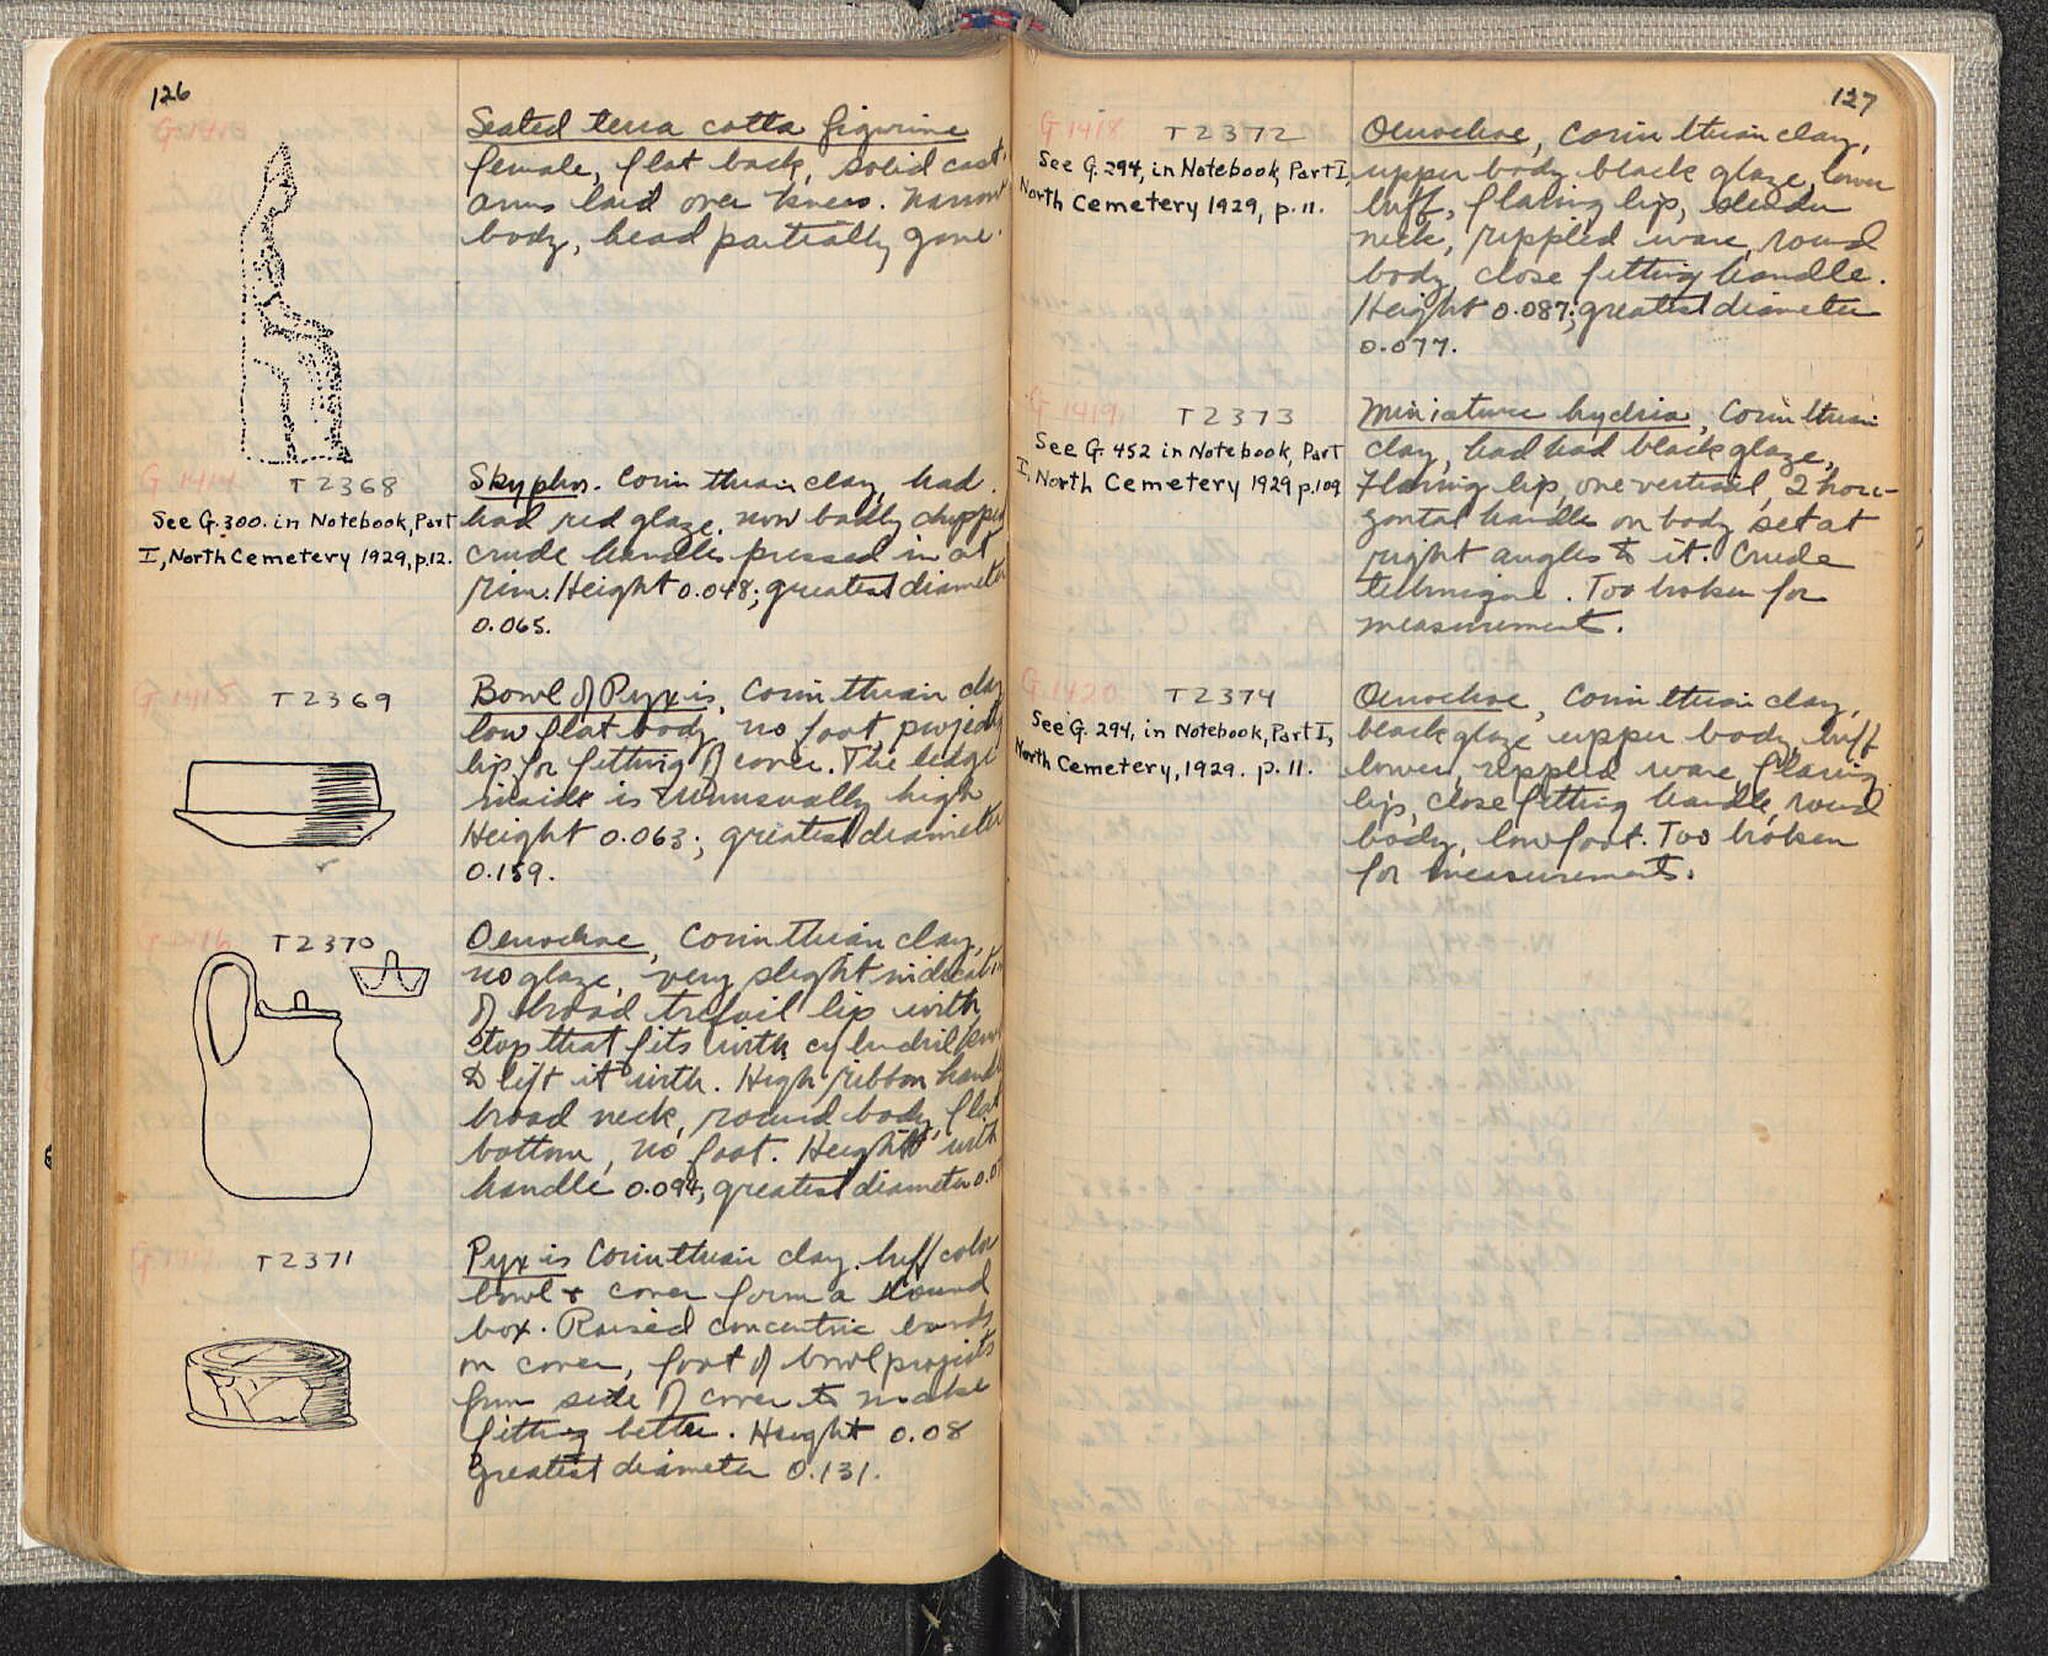 126
G. 1413
Seated terra cotta figurine
female, flat back, solid cast.
arms laid over knees. Narrow
body, head partially gone.
G 1414 T 2368
See G. 300. in Notebook, Part
I, North Cemetery 1929, p.12.
Skyphos. Corinthian clay, had
had red glaze. now badly chipped
crude handles pressed in at
rim. Height 0.048; greatest diameter
0.065.
G 1415 T 2369
Bowl of Pyxis, Corinthian clay
low flat body, no foot, projecting
lip for fitting of cover. The ledge
inside is unusually high
Height 0.063; greatest diameter
0.159.
G 1416 T 2370
Oenochoe, Corinthian clay,
no glaze, very slight indication
of broad trefoil lip with
stop that fits with cylindril knob
to lift it with. High ribbon handle
broad neck, round body, flat
bottom, no foot. Height with
handle 0.094, greatest diameter 0.0
T 2371
Pyxis Corinthian clay. buff color
bowl & cover form a round
box. Raised concentric bands
on cover, foot of bowl projects
from side of cover to make
fitting better. Height 0.08
Greatest diameter 0.131.
127
G 1418 T 2372
See G. 294, in Notebook, Part I,
North Cemetery 1929, p. 11.
Oenochoe, Corinthian clay,
upper body black glaze, lower
buff, flaring lip, slender
neck, rippled ware, round
body, close fitting handle.
Height 0.087; greatest diameter
0.077.
G 1419. T 2373
See G. 452 in Notebook, Part
I, North Cemetery 1929 p.109
Miniature hydria, Corinthian
clay, had had black glaze,
Flaring lip, one vertical, 2 hori-
zontal handles on body set at
right angles to it. Crude
technique. Too broken for
measurement.
G 1420 T 2374
See G. 294, in Notebook, Part I,
North Cemetery, 1929. p. 11.
Oenochoe, Corinthian clay,
black glaze upper body, buff
lower, rippled ware, flaring
lip, close fitting handle, round
body, low foot. Too broken
for measurements.